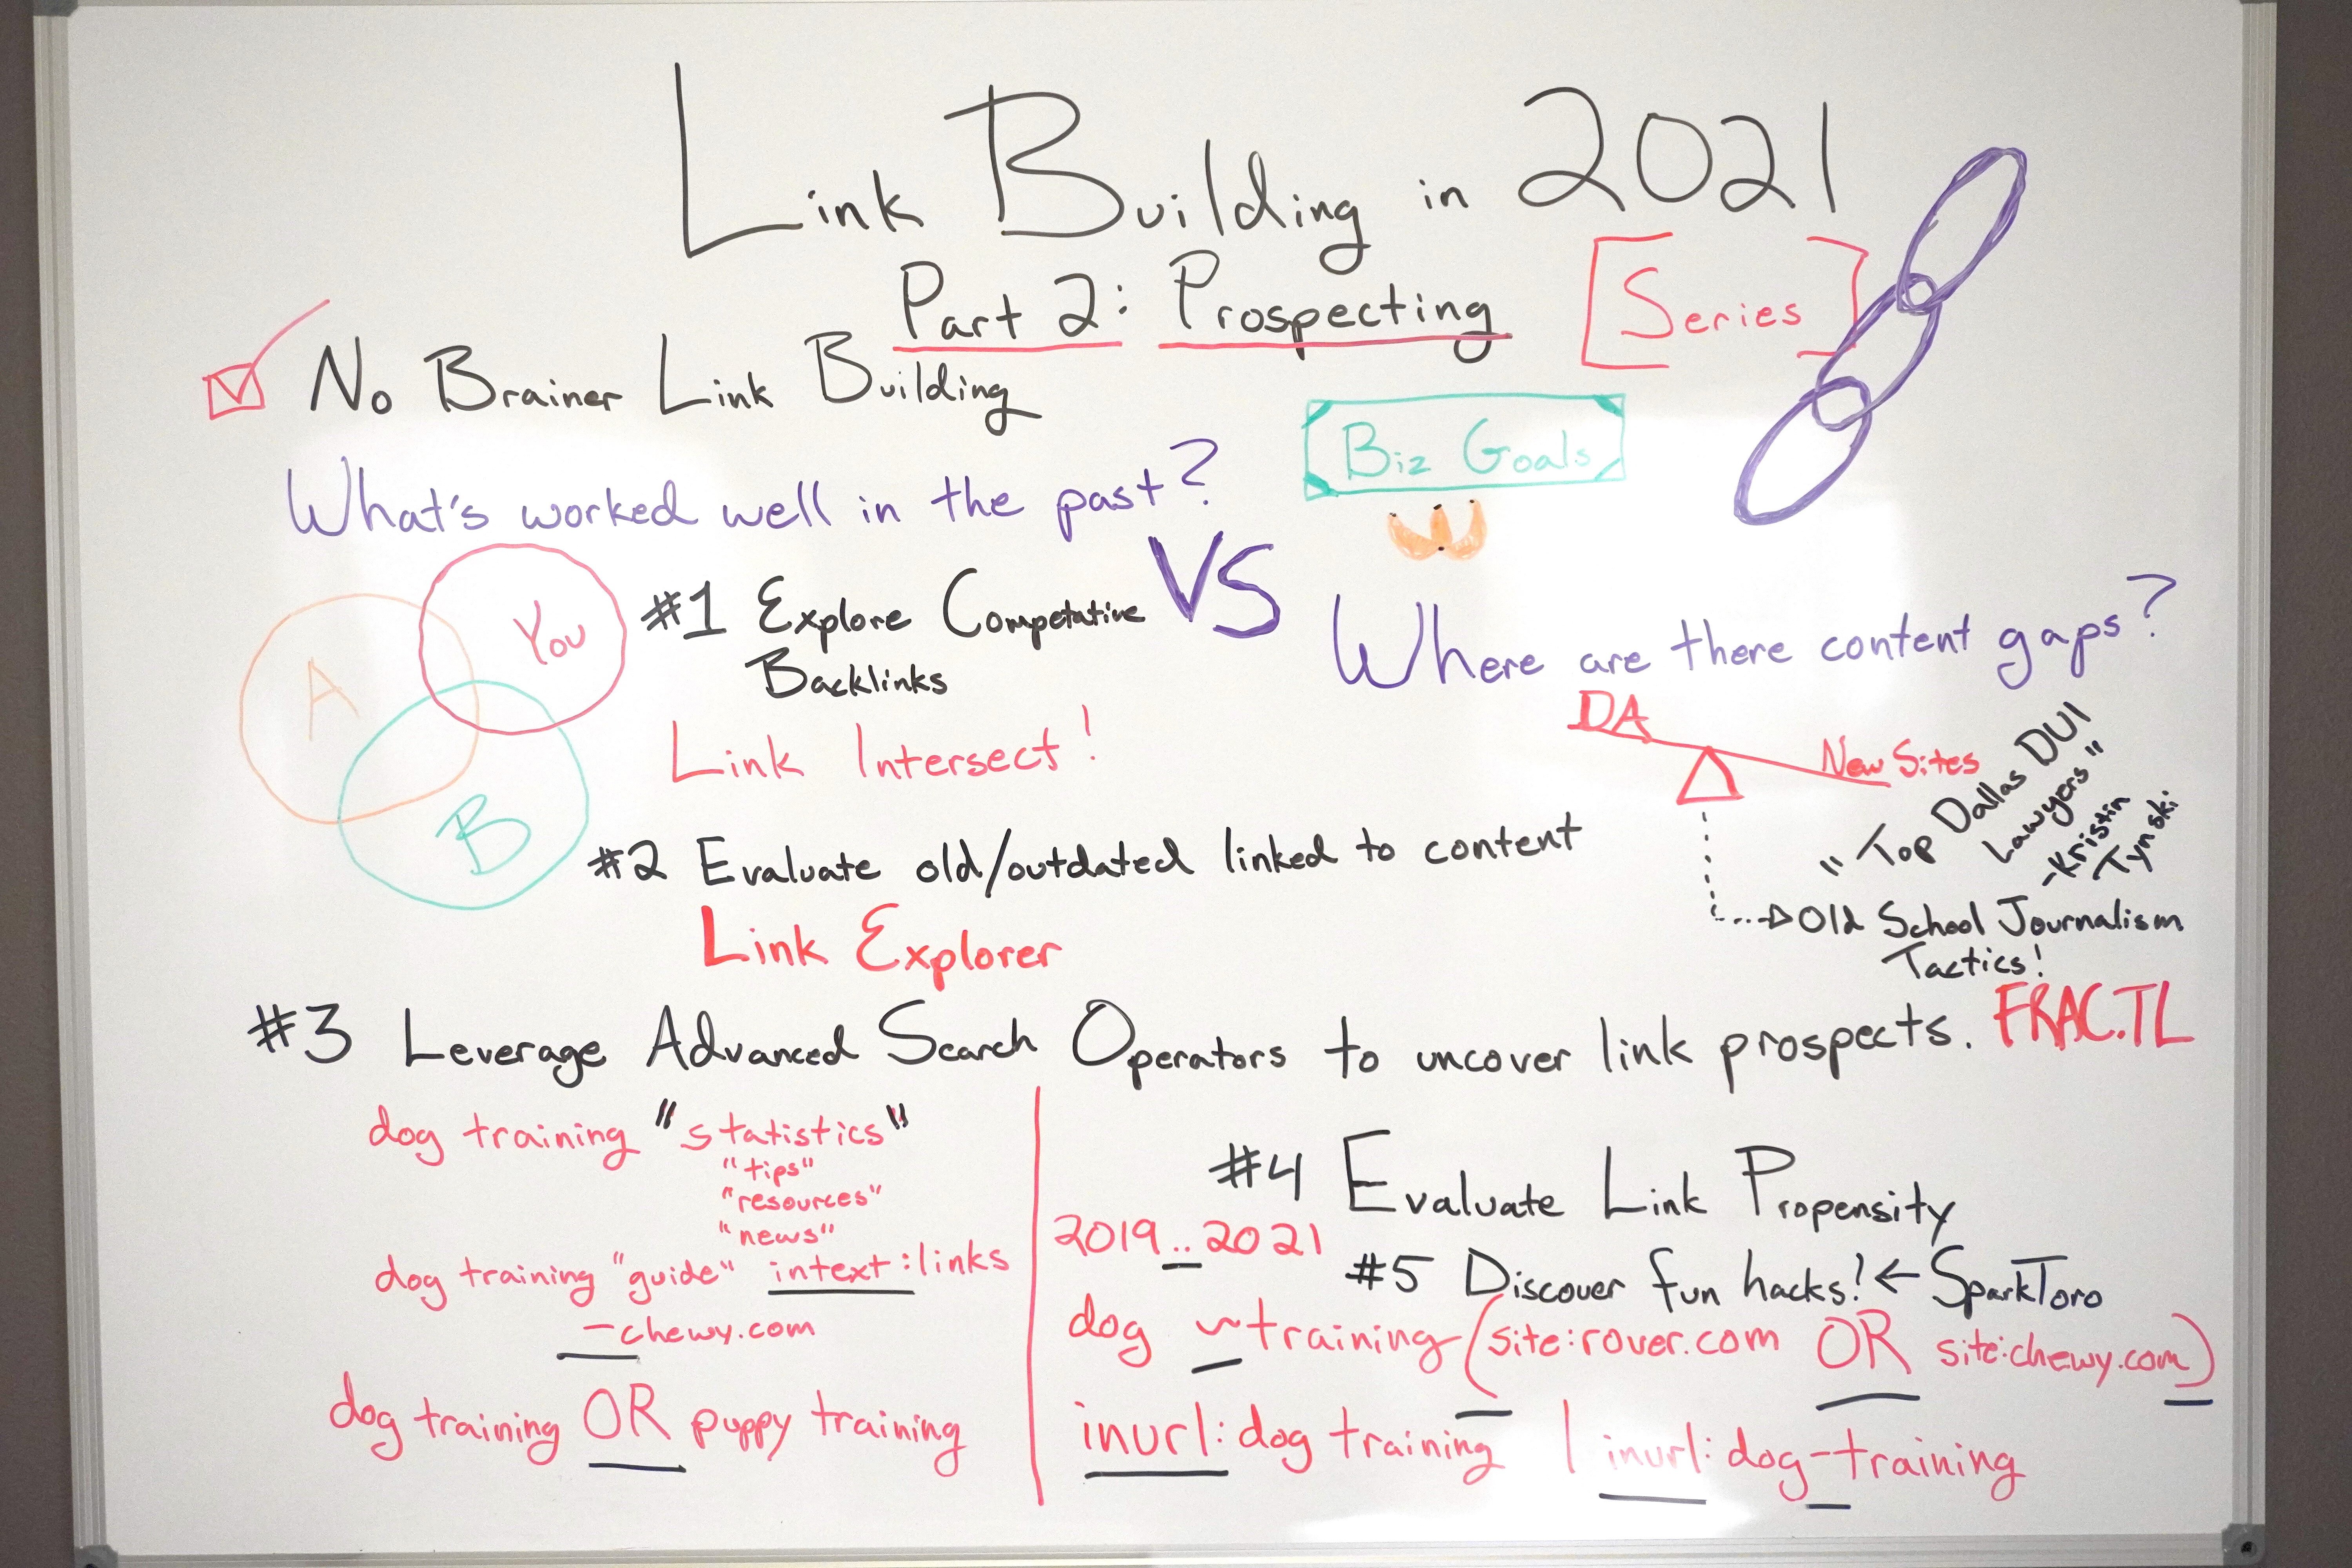 Link Building in 2021
Part 2: Prospecting
[Series]
No Brainer Link Building
Biz Goals
What's worked well in the past?
VS
Where are there content gaps?
You
A
B
#1 Explore Competative
Backlinks
Link Intersect!
DA
New Sites
"Top Dallas DUI
Lawyers"
-Kristin
Tynski
Old School Journalism
Tactics!
FRAC.TL
#2 Evaluate old/outdated linked to content
Link Explorer
#3 Leverage Advanced Search Operators to uncover link prospects.
dog training "statistics"
"tips"
"resources"
"news"
dog training "guide" intext:links
-chewy.com
dog training OR puppy training
#4 Evaluate Link Propensity
2019..2021
#5 Discover fun hacks! ← SparkToro
dog ~training (site:rover.com OR site:chewy.com)
inurl:dog training | inurl:dog-training